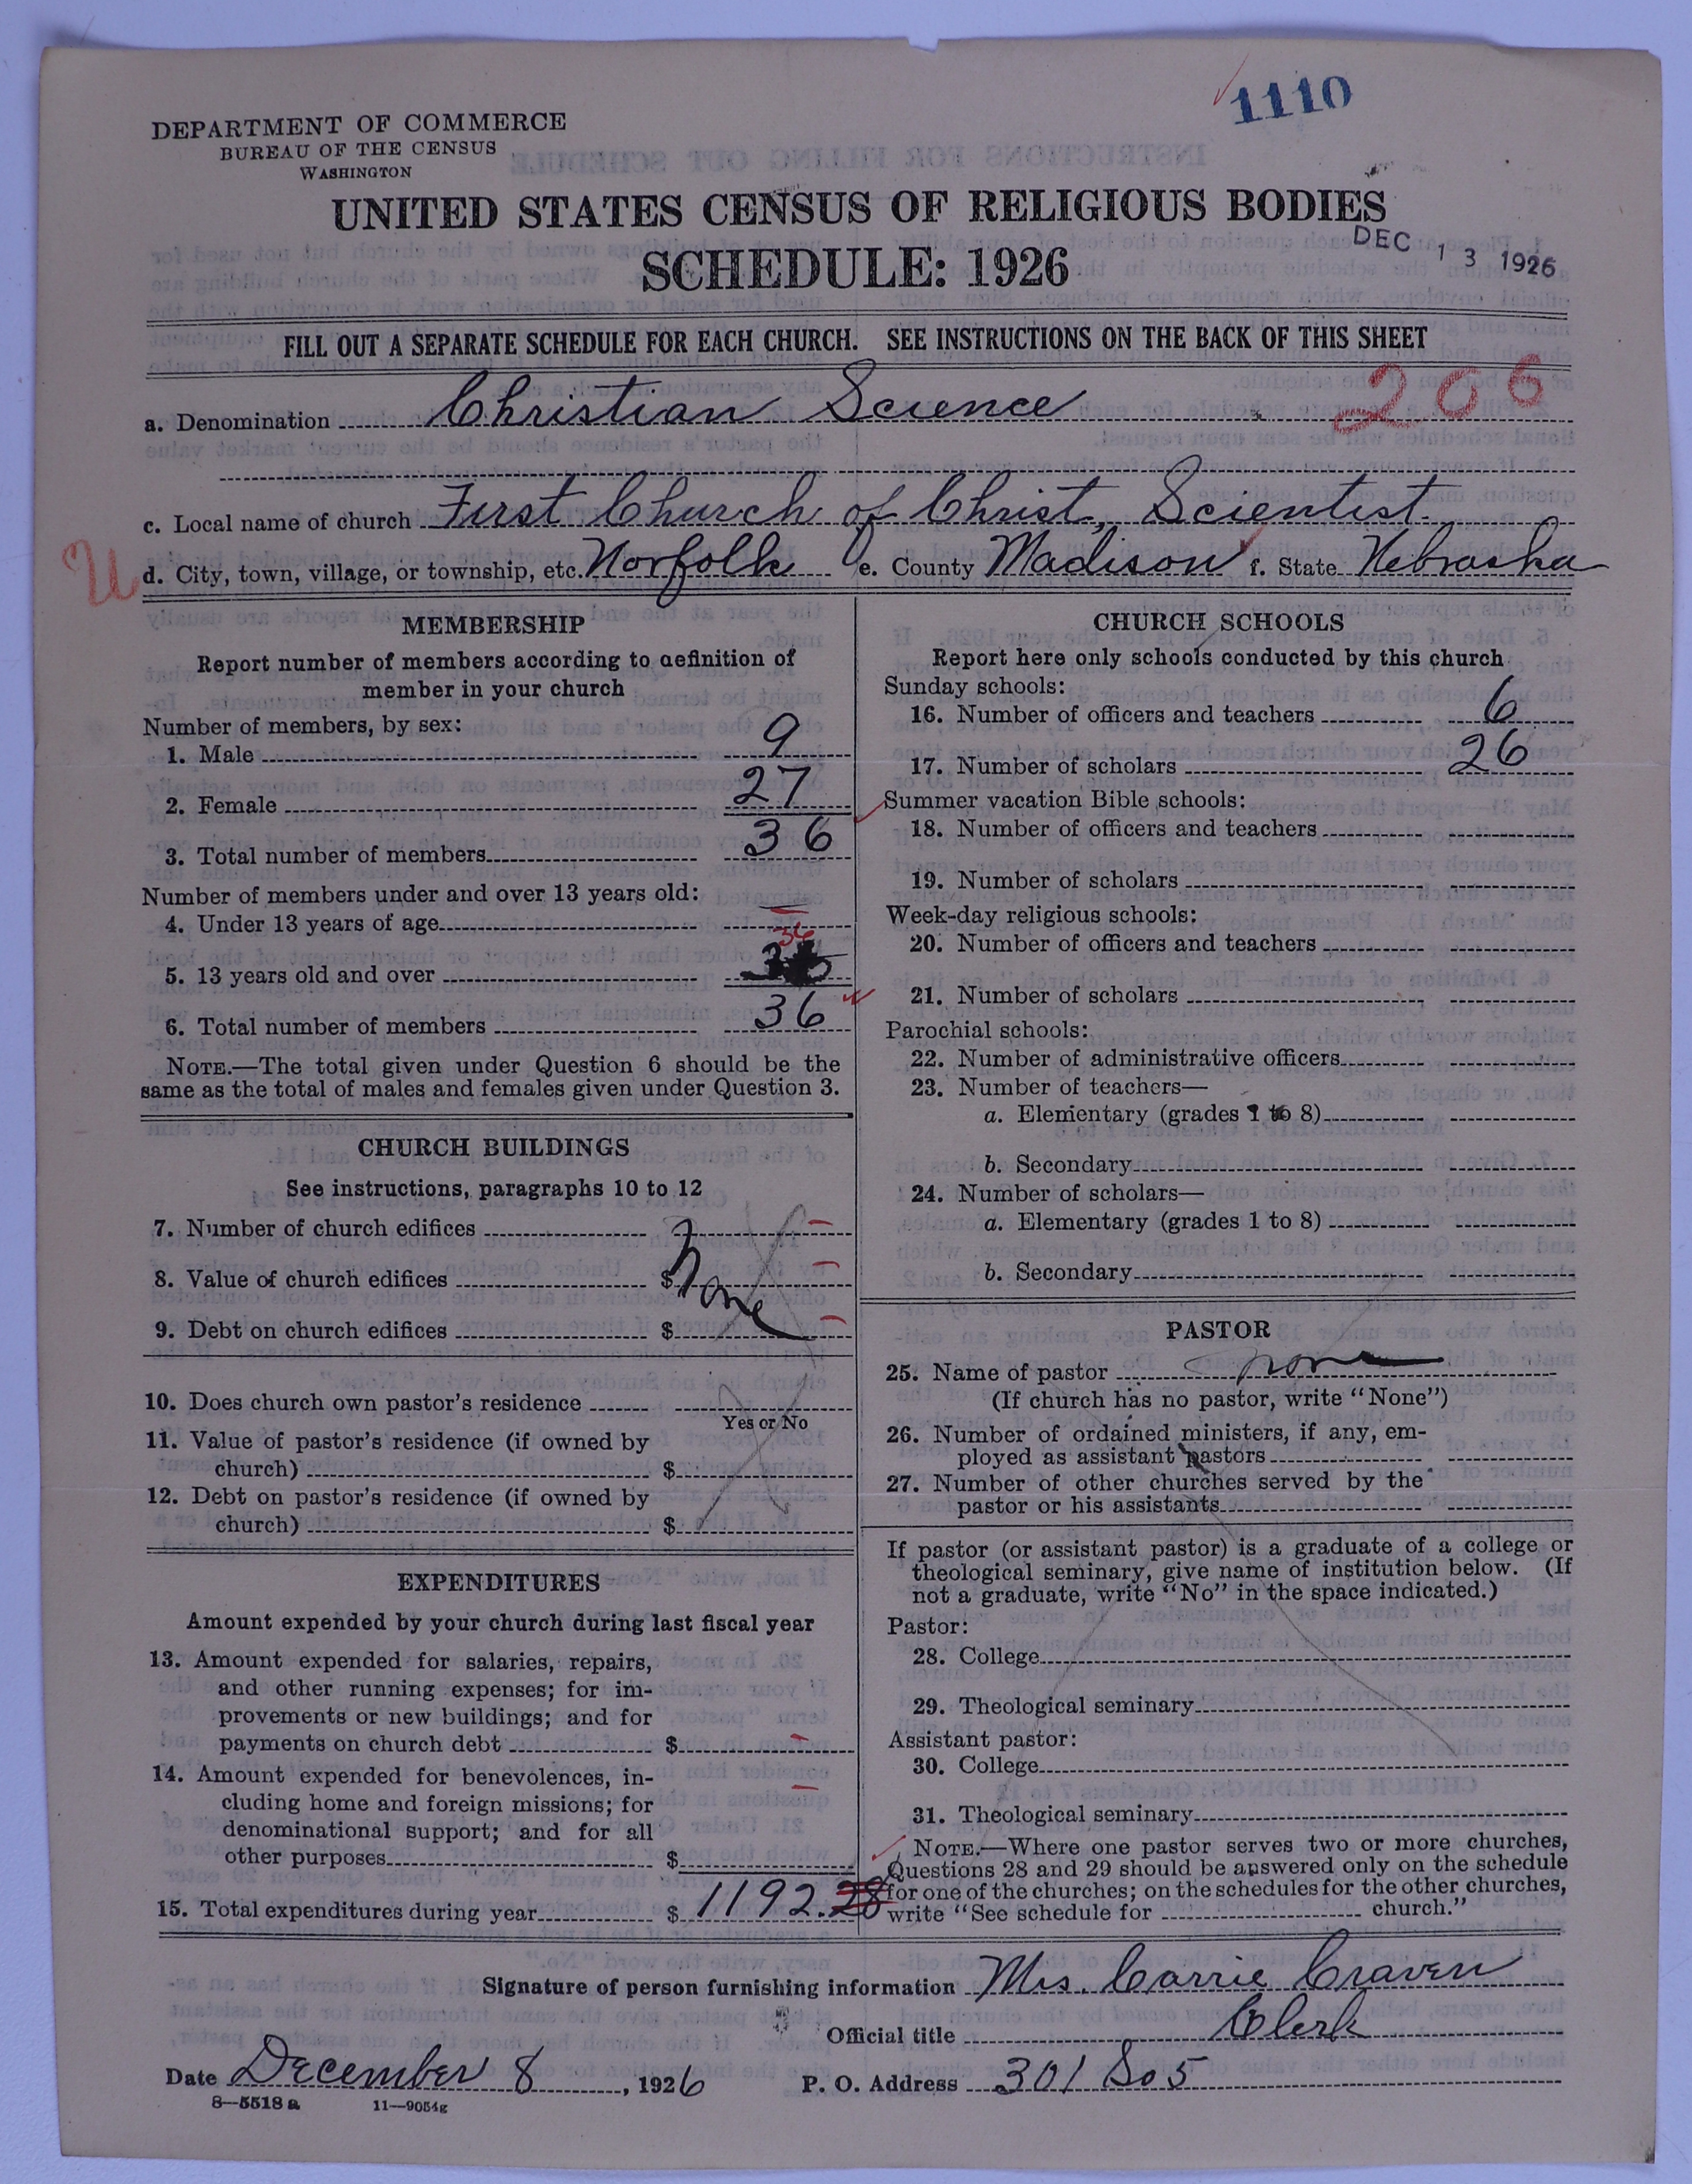 1110
DEPARTMENT OF COMMERCE
BUREAU OF THE CENSUS
WASHINGTON
UNITED STATES CENSUS OF RELIGIOUS BODIES
SCHEDULE: 1926
DEC 13 1926
FILL OUT A SEPARATE SCHEDULE FOR EACH CHURCH. SEE INSTRUCTIONS ON THE BACK OF THIS SHEET
a. Denomination Christian Science 206
c. Local name of church First Church of Christ, Scientist.
U d. City, town, village, or township, etc. Norfolk e. County Madison f. State Nebraska
MEMBERSHIP
Report number of members according to definition of
member in your church
Number of members, by sex:
1. Male 9
2. Female 27
3. Total number of members 36
Number of members under and over 13 years old:
4. Under 13 years of age —
36
5. 13 years old and over
6. Total number of members 36
NOTE.—The total given under Question 6 should be the
same as the total of males and females given under Question 3.
CHURCH BUILDINGS
See instructions, paragraphs 10 to 12
7. Number of church edifices
8. Value of church edifices $ None
9. Debt on church edifices $
10. Does church own pastor's residence
Yes or No
11. Value of pastor's residence (if owned by
church) $
12. Debt on pastor's residence (if owned by
church) $
EXPENDITURES
Amount expended by your church during last fiscal year
13. Amount expended for salaries, repairs,
and other running expenses; for im-
provements or new buildings; and for
payments on church debt $
14. Amount expended for benevolences, in-
cluding home and foreign missions; for
denominational support; and for all
other purposes $
15. Total expenditures during year $ 1192.28
CHURCH SCHOOLS
Report here only schools conducted by this church
Sunday schools:
16. Number of officers and teachers 6
17. Number of scholars 26
Summer vacation Bible schools:
18. Number of officers and teachers
19. Number of scholars
Week-day religious schools:
20. Number of officers and teachers
21. Number of scholars
Parochial schools:
22. Number of administrative officers
23. Number of teachers—
a. Elementary (grades 1 to 8)
b. Secondary
24. Number of scholars—
a. Elementary (grades 1 to 8)
b. Secondary
PASTOR
25. Name of pastor none
(If church has no pastor, write "None")
26. Number of ordained ministers, if any, em-
ployed as assistant pastors
27. Number of other churches served by the
pastor or his assistants
If pastor (or assistant pastor) is a graduate of a college or
theological seminary, give name of institution below. (If
not a graduate, write "No" in the space indicated.)
Pastor:
28. College
29. Theological seminary
Assistant pastor:
30. College
31. Theological seminary
NOTE.—Where one pastor serves two or more churches,
Questions 28 and 29 should be answered only on the schedule
for one of the churches; on the schedules for the other churches,
write "See schedule for church."
Signature of person furnishing information Mrs. Carrie Craven
Official title Clerk
Date December 8, 1926 P. O. Address 301 So 5
8—5518 a 11—9054g